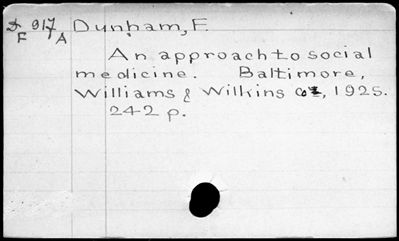 D 917 Dunham, F.
F A
An approach to social
medicine. Baltimore,
Williams & Wilkins co., 1925.
242 p.